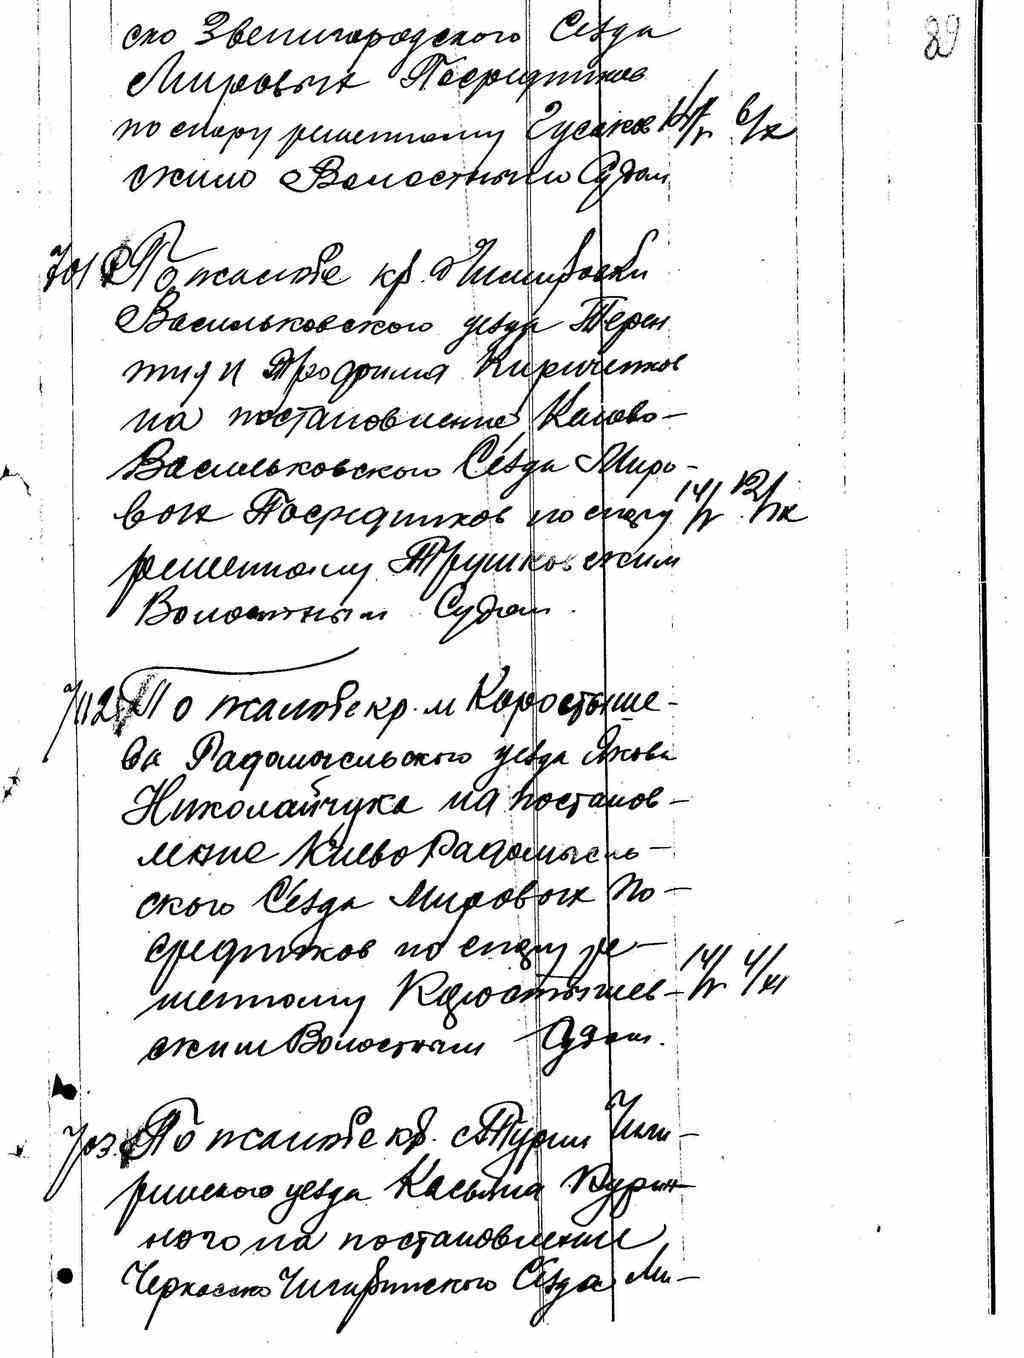 ско Звенигородского Сѣзда
Мировых Посредников
по спору решенному Гусаков 14/V 6/X
ским Волостным Судом
89
701 По жалобе кр.
Васильковского уезда Терен
тия и Трофима Кириченков
на постановление Киево-
Васильковского Сѣзда Миро-
вых Посредников по спору 14/V 12/IX
решенному Трушковским
Волостным Судом.
702 По жалобе кр. м Коростыше-
ва Радомысльского уезда Якова
Николайчука на постанов-
ление Киево Радомысль-
ского Сѣзда Мировых По-
средников по спору ре-
шенному Коростышев- 14/V 4/XI
ским Волостным Судом.
703. По жалобе кр. с Турии Чиги-
ринского уезда Касьяна Курин
ного на постановление
Черкасско Чигиринского Сѣзда Ми-